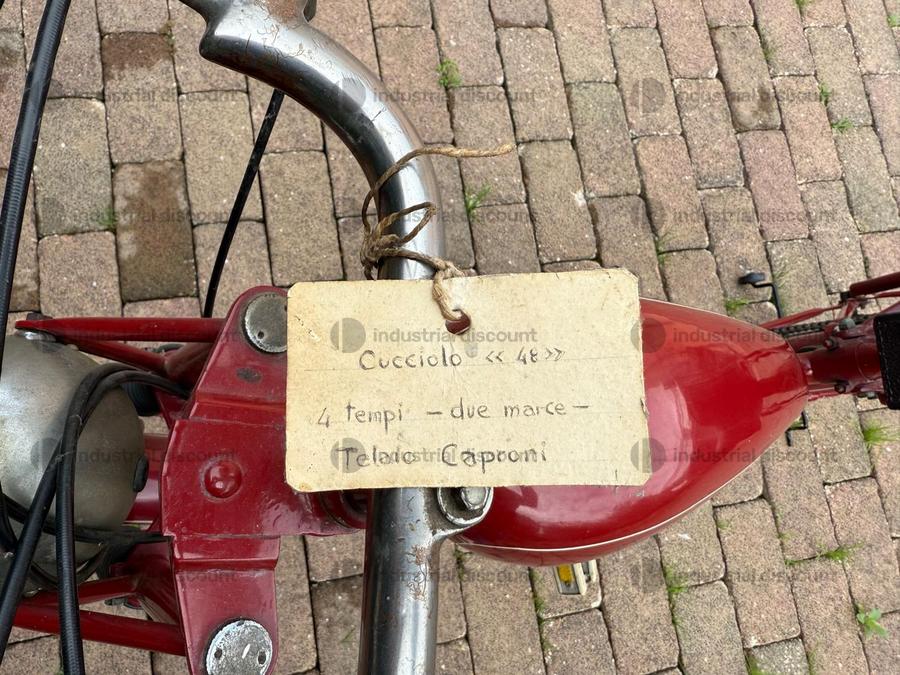 Cucciolo << 48 >>
4 tempi – due marce –
Telaio Caproni
industrial discount